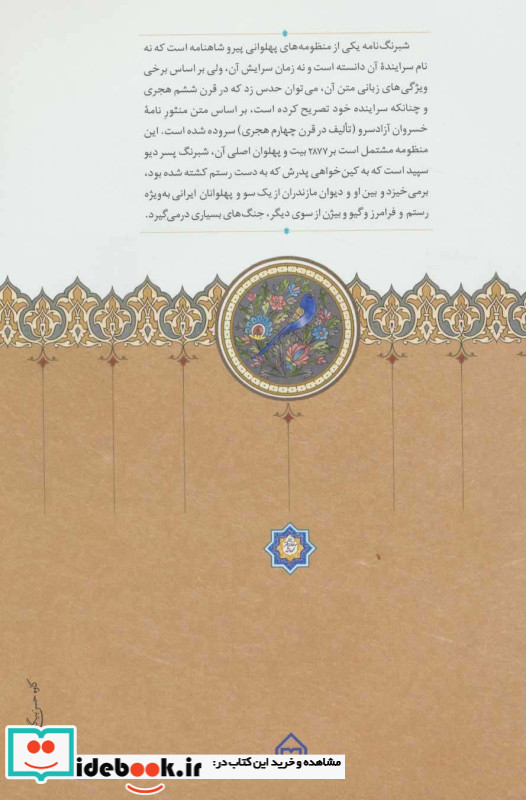 شبرنگ‌نامه یکی از منظومه‌های پهلوانی پیرو شاهنامه است که نه
نام سرایندهٔ آن دانسته است و نه زمان سرایش آن، ولی بر اساس برخی
ویژگی‌های زبانی متن آن، می‌توان حدس زد که در قرن ششم هجری
و چنانکه سراینده خود تصریح کرده است، بر اساس متن منثورِ نامهٔ
خسروان آزادسرو (تألیف در قرن چهارم هجری) سروده شده است. این
منظومه مشتمل است بر ۲۸۷۷ بیت و پهلوان اصلی آن، شبرنگ پسر دیو
سپید است که به کین‌خواهی پدرش که به دست رستم کشته شده بود،
برمی‌خیزد و بین او و دیوان مازندران از یک سو و پهلوانان ایرانی به‌ویژه
رستم و فرامرز و گیو و بیژن از سوی دیگر، جنگ‌های بسیاری درمی‌گیرد.
مشاهده و خرید این کتاب در:
idebook.ir